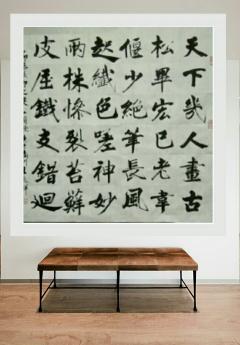 天下幾人畫古
松畢宏已老韋
偃少絕筆長風
起纖色嗟神妙
兩株慘裂苔蘚
皮屈鐵交錯迴